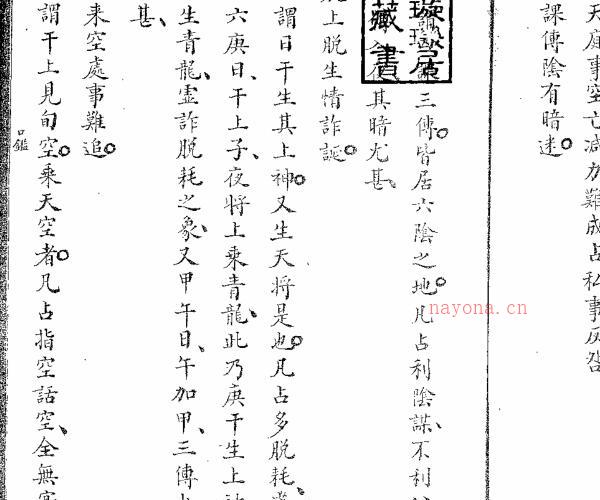 天庭事空亡減力難成占私事反
課傳陰有暗迷
三傳皆居六陰之地凡占利陰謀不利
其暗尤甚
上脱生情詐誕
謂日干生其上神又生天將是也凡占多脱耗
六庚日干上子夜將上乘青龍此乃庚干生上
生青龍虛詐脱耗之象又甲午日午加甲三傳
甚
來空處事難追
謂干上見旬空乘天空者凡占指空話空全無
口鑑
藏書
nayona.cn